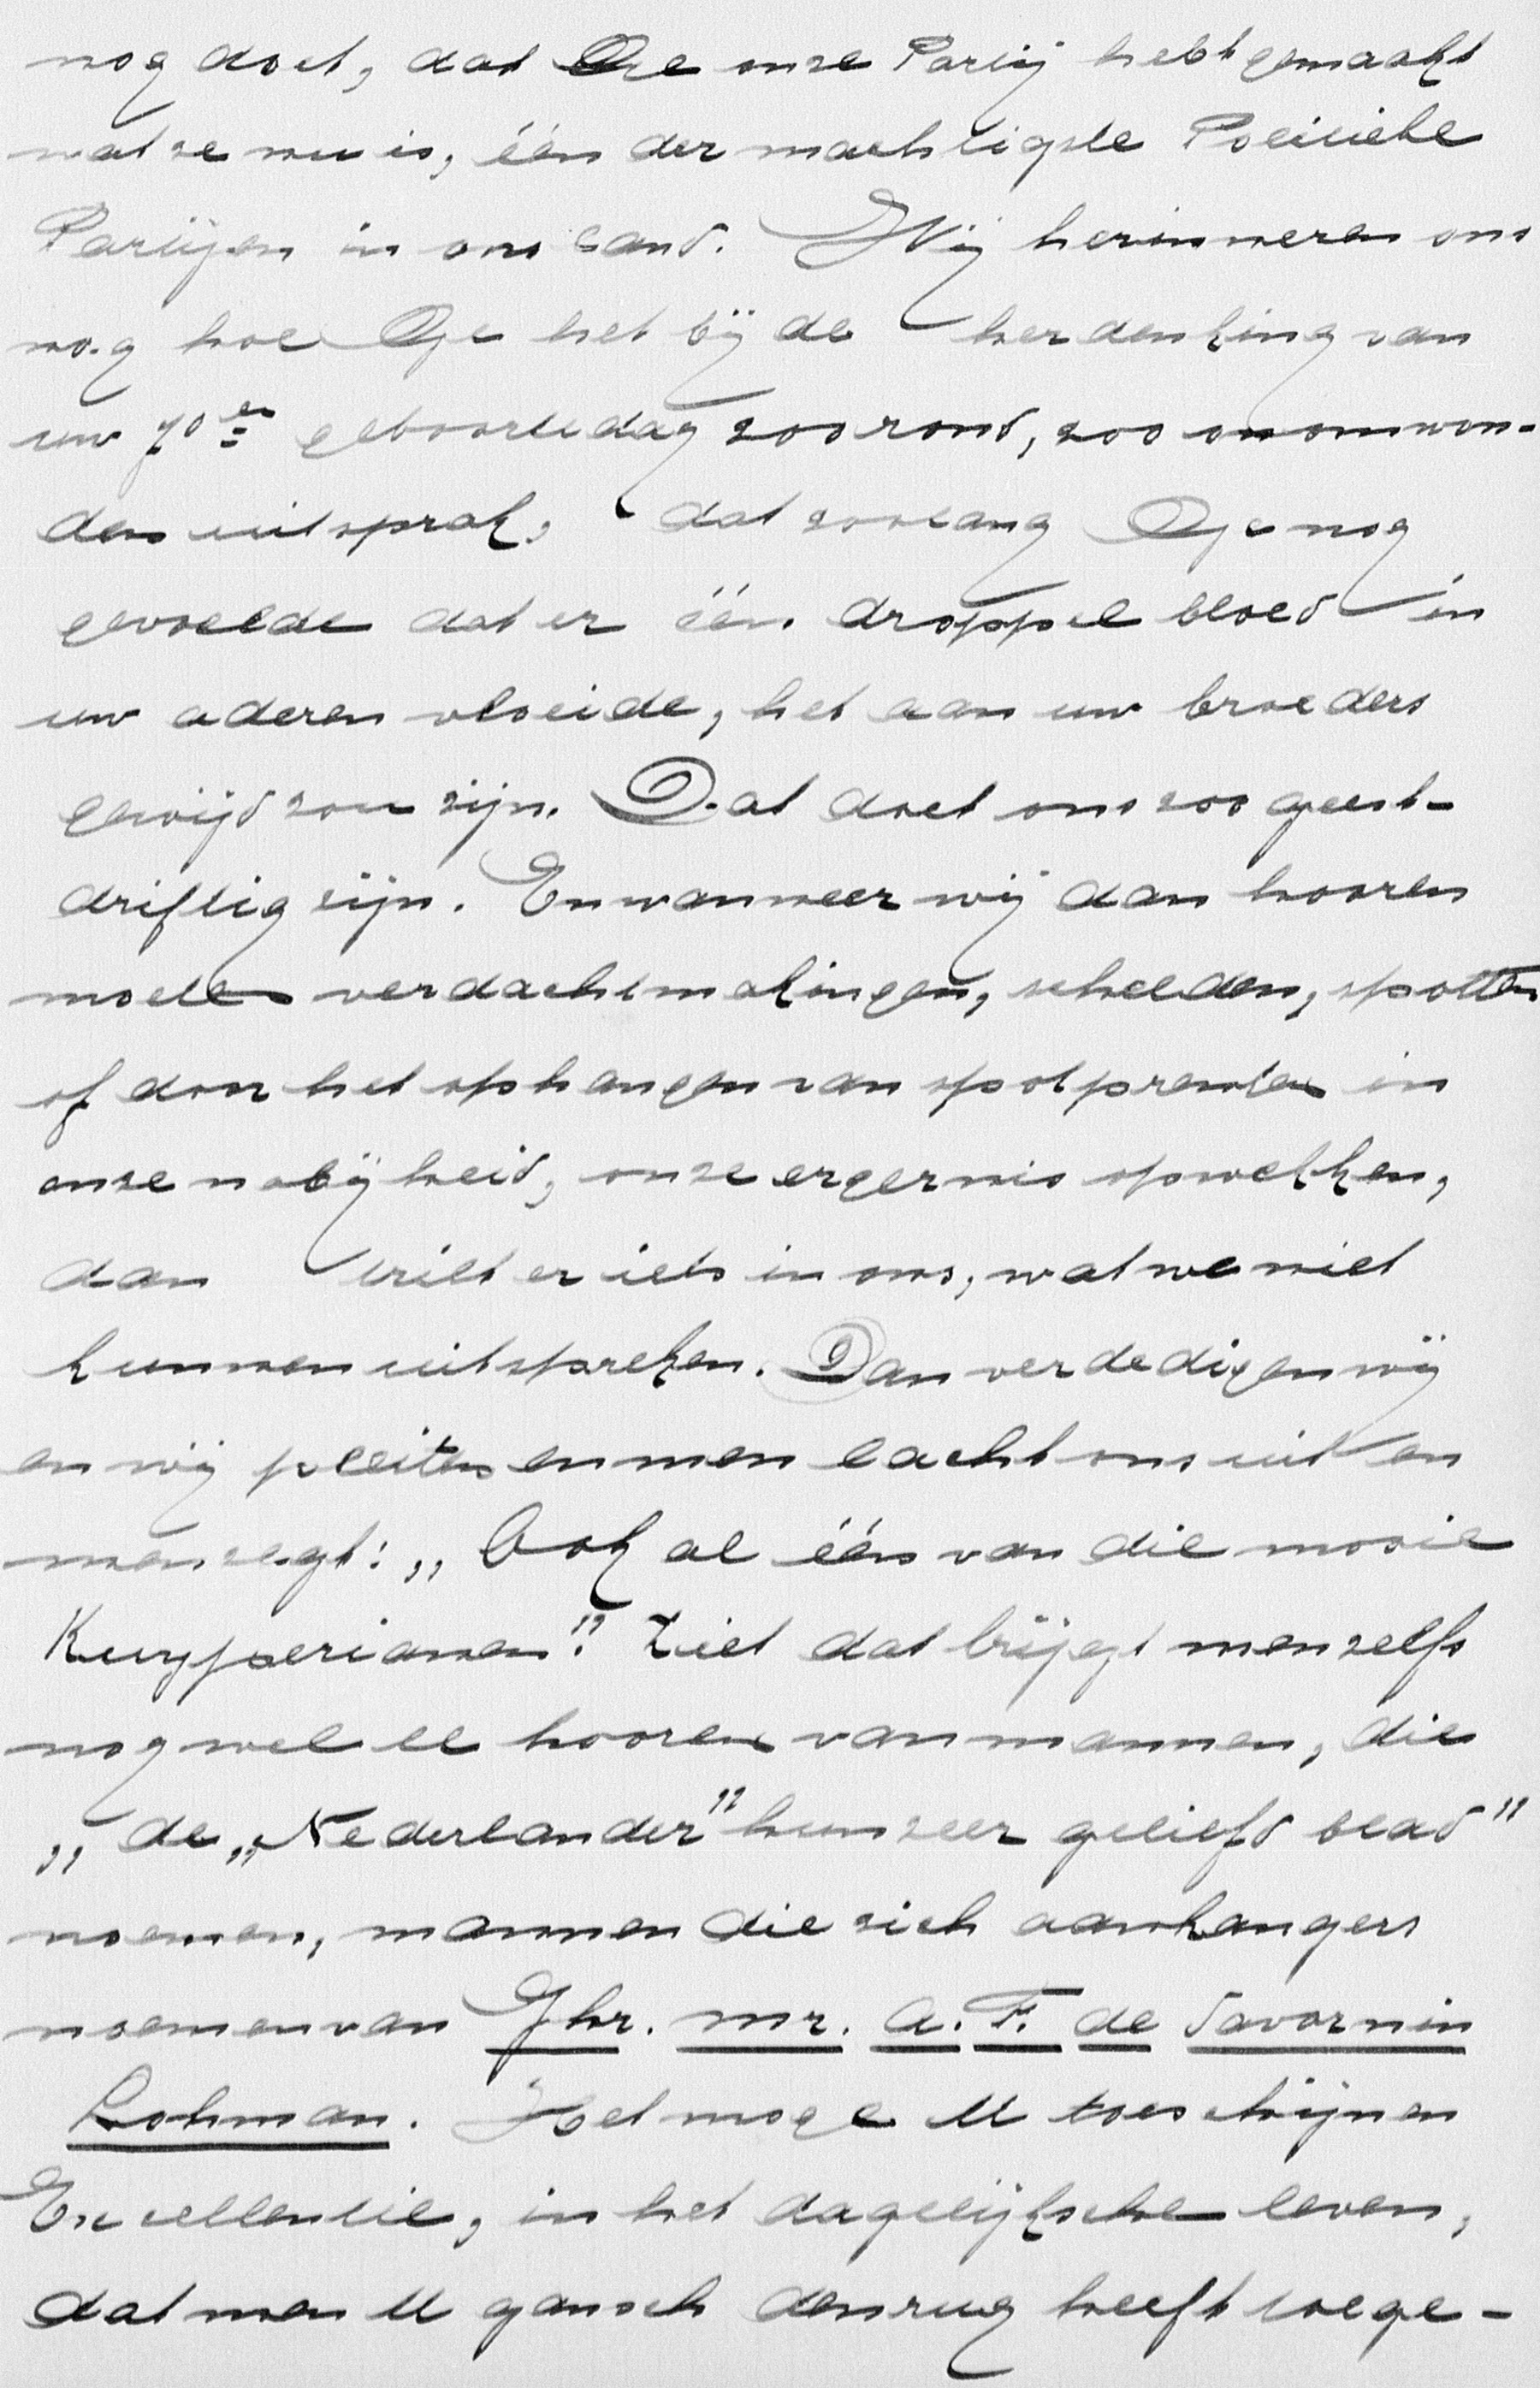 nog doet, dat Ge onze Partij hebt gemaakt
wat ze nu is, één der machtigste Politieke
Partijen in ons land. Wij herinneren ons
nog hoe Ge het bij de herdenking van
uw 70en geboortedag zoo rond, zoo onomwon-
den uitsprak, dat zoolang Ge nog
gevoelde dat er één droppel bloed in
uw aderen vloeide, het aan uw broeders
gewijd zou zijn. Dat doet ons zoo geest-
driftig zijn. En wanneer wij dan hooren
moeten verdachtmakingen, schelden, spotten
of door het ophangen van spotprenten in
onze nabijheid, onze ergernis opwekken,
dan trilt er iets in ons, wat we niet
kunnen uitspreken. Dan verdedigen wij
en wij pleiten en men lacht ons uit en
men zegt: „Ook al één van die mooie
Kuyperianen". Ziet dat krijgt men zelfs
nog wel te hooren van mannen, die
„de „Nederlander" hun zeer geliefd blad"
noemen, mannen die zich aanhangers
noemen van Jhr. mr. A. F. de Savornin
Lohman. Het moge U toeschijnen
Excellentie, in het dagelijksche leven,
dat men U gansch den rug heeft toege-